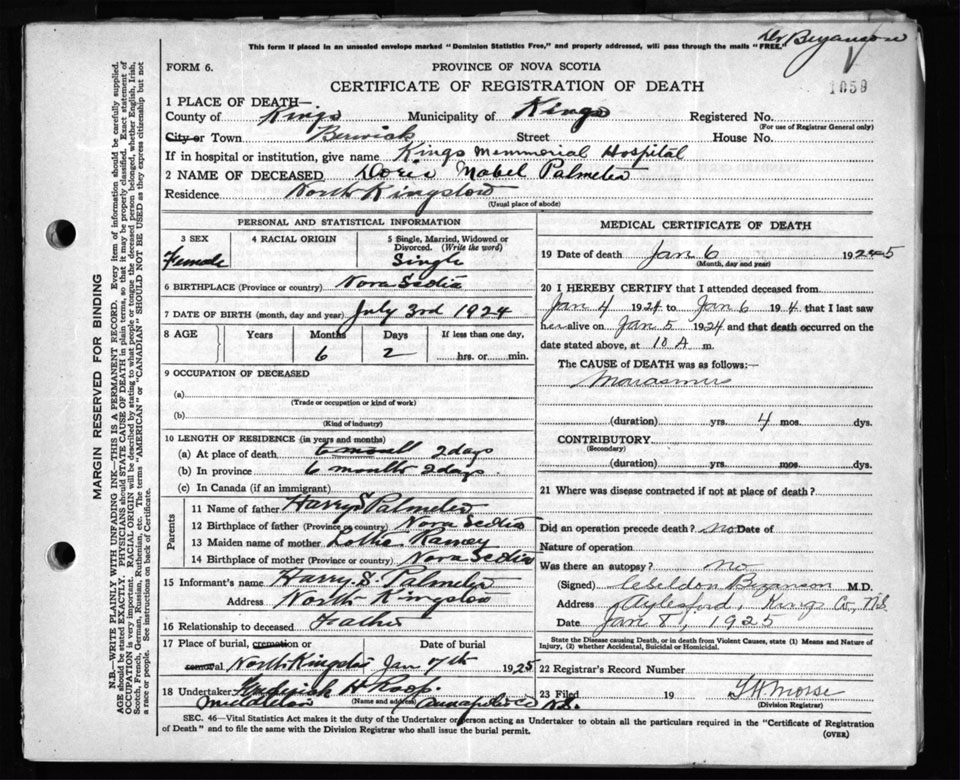 This form if placed in an unsealed envelope marked "Dominion Statistics Free," and properly addressed, will pass through the mails "FREE."
Dr Bezanson
FORM 6.
PROVINCE OF NOVA SCOTIA
CERTIFICATE OF REGISTRATION OF DEATH
1059
1 PLACE OF DEATH—
County of Kings Municipality of Kings Registered No.
(For use of Registrar General only)
City or Town Berwick Street House No.
If in hospital or institution, give name Kings Memmorial Hospital
2 NAME OF DECEASED Doris Mabel Palmeter
Residence North Kingston
(Usual place of abode)
PERSONAL AND STATISTICAL INFORMATION
3 SEX
Female
4 RACIAL ORIGIN
5 Single, Married, Widowed or Divorced. (Write the word)
Single
6 BIRTHPLACE (Province or country) Nova Scotia
7 DATE OF BIRTH (month, day and year) July 3rd 1924
8 AGE Years Months Days If less than one day,
6 2 hrs. or min.
9 OCCUPATION OF DECEASED
(a)
(Trade or occupation or kind of work)
(b)
(Kind of industry)
10 LENGTH OF RESIDENCE (in years and months)
(a) At place of death 6 month 2 days
(b) In province 6 months 2 days.
(c) In Canada (if an immigrant)
Parents
11 Name of father Harry S Palmeter
12 Birthplace of father (Province or country) Nova Scotia
13 Maiden name of mother Lottie Ramey
14 Birthplace of mother (Province or country) Nova Scotia
15 Informant's name Harry. S. Palmeter
Address North Kingston
16 Relationship to deceased Father
17 Place of burial, cremation or removal Date of burial
North Kingston Jan 7th 1925
18 Undertaker H. Roop.
(Name and address)
Middleton Annapolis Co N.S.
MEDICAL CERTIFICATE OF DEATH
19 Date of death Jan 6 1925
(Month, day and year)
20 I HEREBY CERTIFY that I attended deceased from
Jan 4 1924 to Jan 6 194 that I last saw
her alive on Jan 5 1924 and that death occurred on
date stated above, at 10 A m.
The CAUSE of DEATH was as follows:—
Marasmus
(duration) yrs. 4 mos. dys.
CONTRIBUTORY
(Secondary)
(duration) yrs. mos. dys.
21 Where was disease contracted if not at place of death?
Did an operation precede death? no Date of
Nature of operation
Was there an autopsy? no
(Signed) C Seldon Bezanson M.D.
Address Aylesford, Kings Co, N.S.
Date Jan 8, 1925
State the Disease causing Death, or in death from Violent Causes, state (1) Means and Nature of Injury, (2) whether Accidental, Suicidal or Homicidal.
22 Registrar's Record Number
23 Filed 19 Morse
(Division Registrar)
SEC. 46—Vital Statistics Act makes it the duty of the Undertaker or person acting as Undertaker to obtain all the particulars required in the "Certificate of Registration
of Death" and to file the same with the Division Registrar who shall issue the burial permit.
(OVER)
MARGIN RESERVED FOR BINDING
N.B.—WRITE PLAINLY WITH UNFADING INK—THIS IS A PERMANENT RECORD. Every item of information should be carefully supplied.
AGE should be stated EXACTLY. PHYSICIANS should STATE CAUSE OF DEATH in plain terms, so that it may be properly classified. Exact statement of
OCCUPATION is very important. RACIAL ORIGIN will be described by stating to what people or tongue the deceased person belonged, whether English, Irish,
Scotch, French, German, Russian, Ruthenian, etc. The terms "AMERICAN" or "CANADIAN" SHOULD NOT BE USED as they express citizenship but not
a race or people. See instructions on back of Certificate.